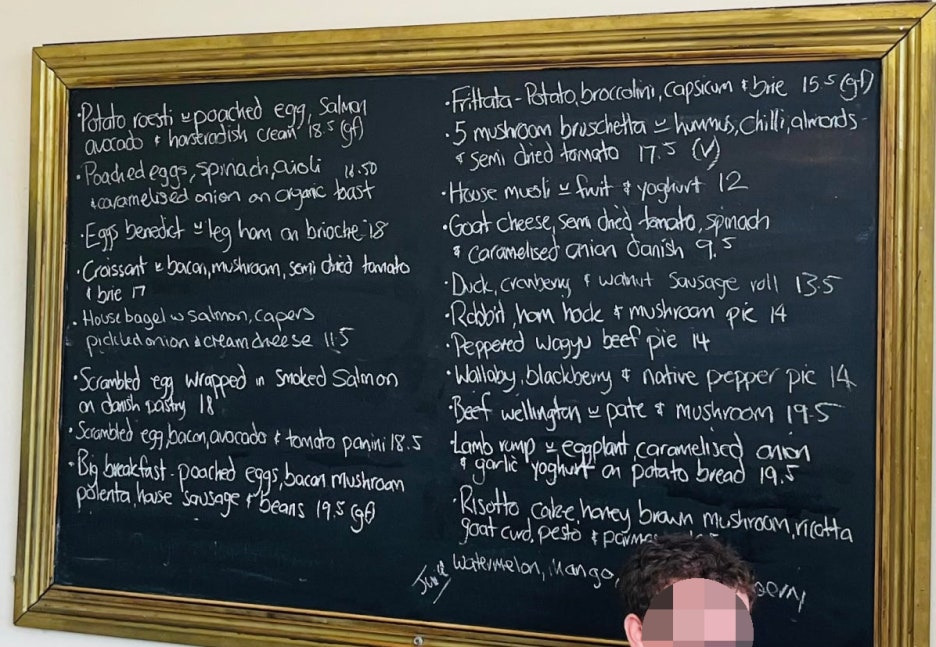 ·Potato roesti w poached egg, salmon
avocado & horseradish cream 18.5 (gf)
·Poached eggs, spinach, aioli 16.50
& caramelised onion on organic toast
·Eggs benedict w leg ham on brioche 18
·Croissant w bacon, mushroom, semi dried tomato
& brie 17
·House bagel w salmon, capers
pickled onion & cream cheese 11.5
·Scrambled egg wrapped in smoked salmon
on danish pastry 18
·Scrambled egg, bacon, avocado & tomato panini 18.5
·Big breakfast - poached eggs, bacon mushroom
polenta, house sausage & beans 19.5 (gf)
·Frittata - Potato, broccolini, capsicum & brie 15.5 (gf)
·5 mushroom bruschetta w hummus, chilli, almonds
& semi dried tomato 17.5 (V)
·House muesli w fruit & yoghurt 12
·Goat cheese, semi dried tomato, spinach
& caramelised onion danish 9.5
·Duck, cranberry & walnut sausage roll 13.5
·Rabbit, ham hock & mushroom pie 14
·Peppered wagyu beef pie 14
·Wallaby, blackberry & native pepper pie 14
·Beef wellington w pate & mushroom 19.5
·Lamb rump w eggplant, caramelised onion
& garlic yoghurt on potato bread 19.5
·Risotto cake, honey brown mushroom, ricotta
goat curd, pesto &
Watermelon, Mango,